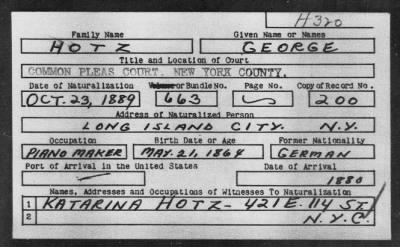 H320
Family Name Given Name or Names
HOTZ GEORGE
Title and Location of Court
COMMON PLEAS COURT, NEW YORK COUNTY.
Date of Naturalization Volume or Bundle No. Page No. Copy of Record No.
OCT. 23, 1889 663 200
Address of Naturalized Person
LONG ISLAND CITY. N.Y.
Occupation Birth Date or Age Former Nationality
PIANO MAKER MAY. 21. 1864 GERMAN
Port of Arrival in the United States Date of Arrival
1880
Names, Addresses and Occupations of Witnesses To Naturalization
1 KATARINA HOTZ - 421 E. 114 ST.
2 N.Y.C.